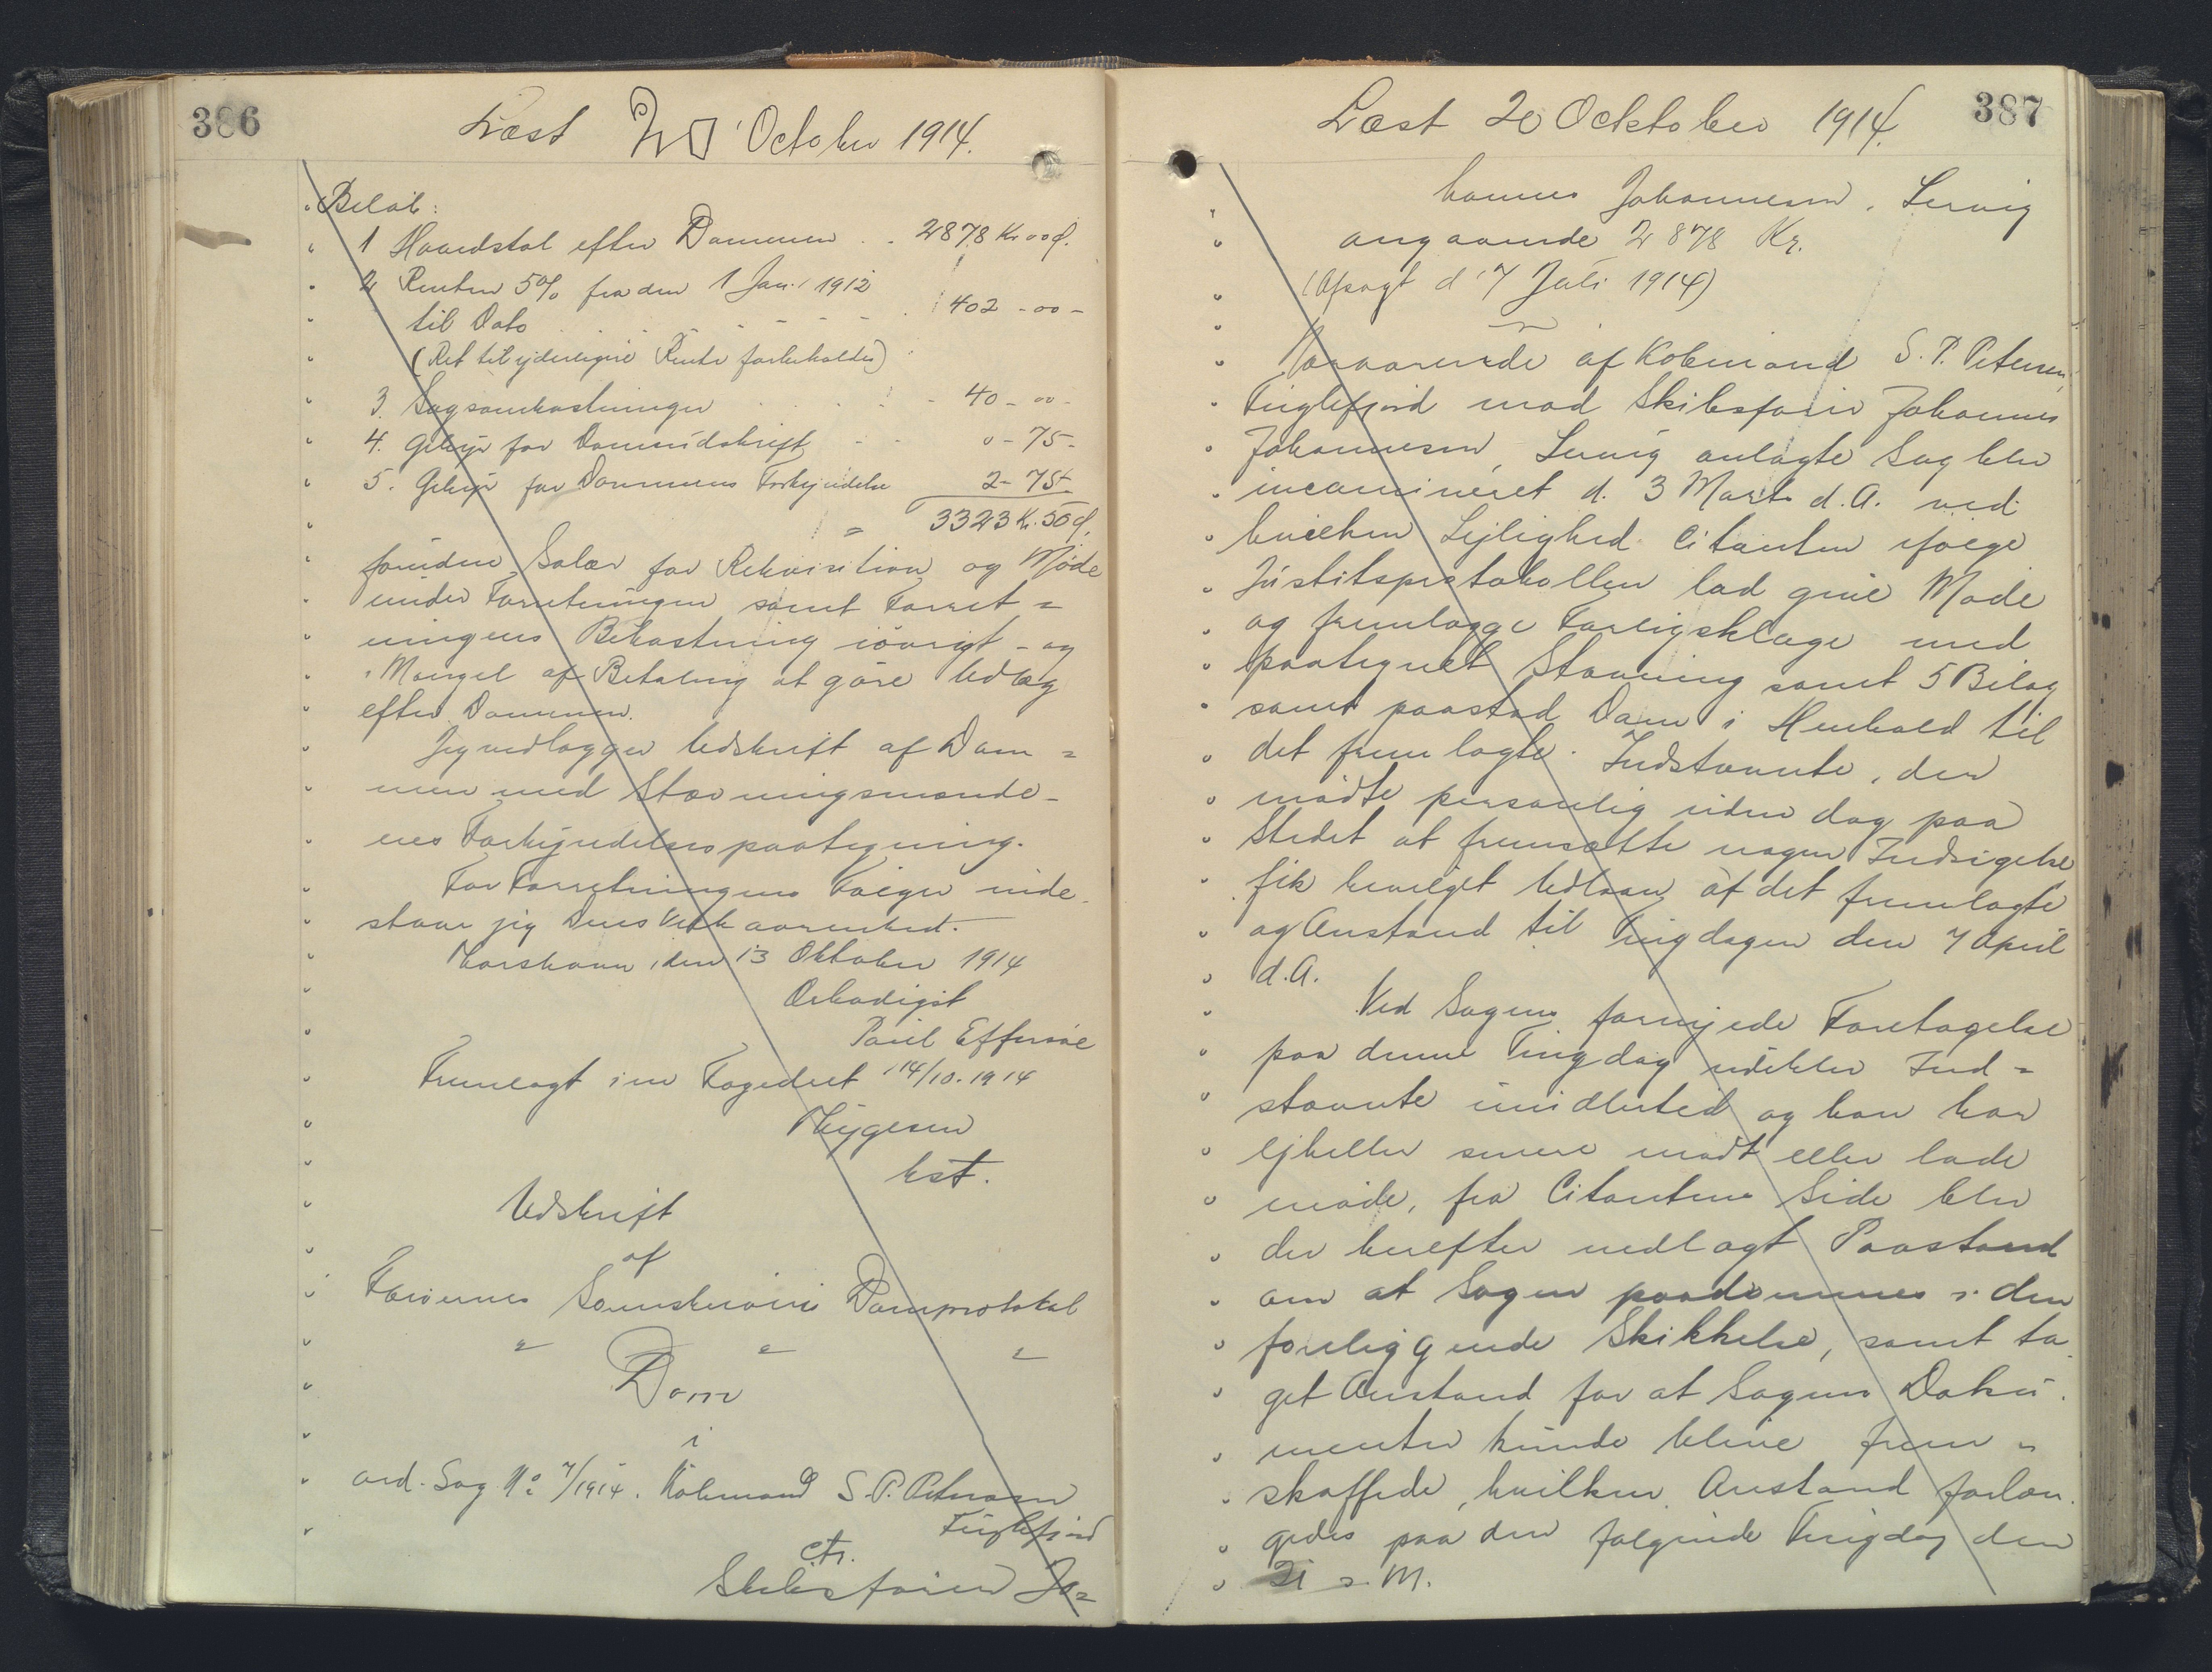 386
Læst 20 October 1914.
Beløb:
1 Hovedstol efter Dommen . . 2878 Kr 00 Ø.
2 Renten 5% fra den 1 Jan. 1912
til Dato . . . . . . 402 - 00 -
(Ret til yderligere Rente forbeholdes)
3. Sagsomkostninger . . . . 40 - 00 -
4. Gebyr for Domsudskrift - - 0 - 75 -
5. Gebyr for Dommens Forkyndelse 2 - 75 -
= 3323 Kr. 50 Ø.
foruden Salær for Rekvisition og Møde
under Forretningen samt Forret=
ningens Bekostning iøvrigt - og
i Mangel af Betaling at gøre Udlæg
efter Dommen.
Jeg vedlægger Udskrift af Dom=
men med Stævningsmænde-
nes Forkyndelsespaategning.
For Forretningens Følger inde-
staar jeg Deres Velbaarenhed.
Thorshavn, den 13 Oktober 1914
Ærbødigst
Poul Effersøe
Fremlagt i en Fogedret 14/10. 1914
Thygesen
kst.
Udskrift
af
Færøernes Sorenskriveris Domprotokol
" " "
Dom
i
ord. Sag No 7/1914. Købmand S. P. Petersen
Fuglefjord
ctr.
Skibsfører Jo=
387
Læst 20 Ocktober 1914.
hannes Johannesen, Lervig
angaaende 2878 Kr.
(Afsagt d. 7 Juli 1914)
Nærværende af Købmand S. P. Petersen,
Fuglefjord mod Skibsfører Johannes
Johannesen, Lervig anlagte Sag blev
incamineret d. 3 Marts d.A. ved
hvilken Lejlighed Citanten ifølge
Justitsprotokollen lod give Møde
og fremlægge Forligsklage med
paategnet Stævning samt 5 Bilag
samt paastod Dom i Henhold til
det fremlagte. Indstævnte, der
mødte personlig uden dog paa
Stedet at fremsætte nogen Indsigelse
fik bevilget Udlaan af det fremlagte
og Anstand til Tingdagen den 7 April
d.A.
Ved Sagens fornyede Foretagelse
paa denne Tingdag udeblev Ind=
stævnte imidlertid og han har
ejheller senere mødt eller lade
møde, fra Citantens Side blev
der herefter nedlagt Paastand
om at Sagen paadømmes i den
foreliggende Skikkelse, samt ta-
get Anstand for at Sagens Doku-
menter kunde blive frem=
skaffede, hvilken Anstand forlæn-
gedes paa den følgende Tingdag den
21 s. M.